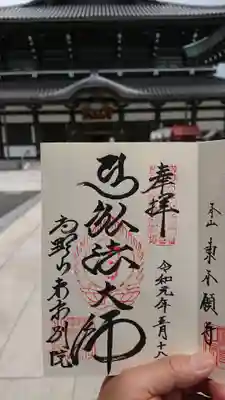 本山 東本願寺
奉拝
令和元年五月十八
弘法大師
高野山東京別院